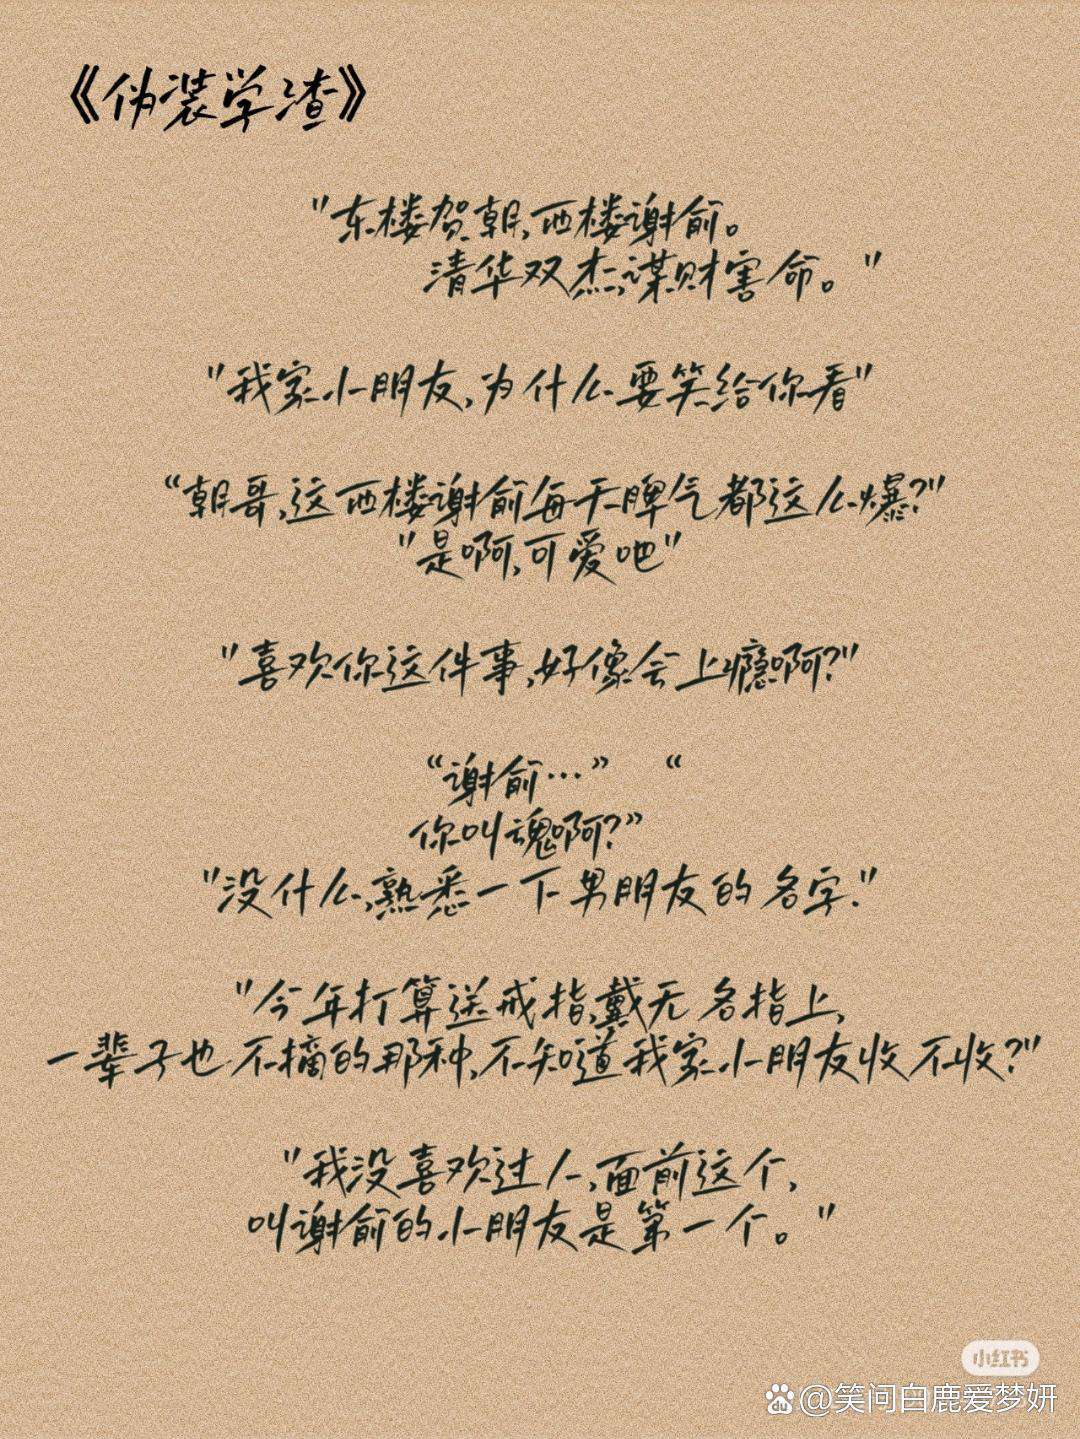 《伪装学渣》
"东楼贺朝,西楼谢俞。
清华双杰,谋财害命。"
"我家小朋友,为什么要笑给你看"
“朝哥,这西楼谢俞每天脾气都这么爆?"
"是啊,可爱吧"
"喜欢你这件事,好像会上瘾啊?"
“谢俞…” “
你叫魂啊?”
"没什么,熟悉一下男朋友的名字."
"今年打算送戒指,戴无名指上,
一辈子也不摘的那种,不知道我家小朋友收不收?"
"我没喜欢过人,面前这个,
叫谢俞的小朋友是第一个。"
小红书
du @笑问白鹿爱梦妍